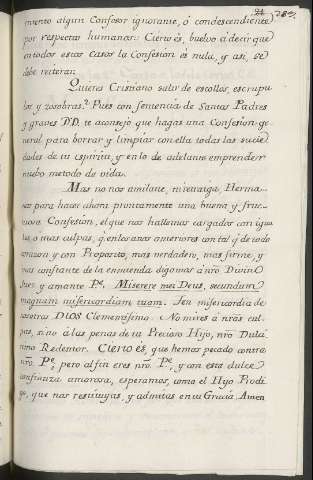 24 283.
mento algun Confesor ignorante, ó condescendiente
por respectos humanos: Cierto és, buelvo á decir que
en todos estos casos la Confesion es nula, y asi, se
debe reiterar.
Quieres Cristiano salir de escollos, escrupu
los y zozobras? Pues con sentencia de Santos Padres
y graves D.D. te aconsejo que hagas una Confesion ge-
neral para borrar y limpiar con ella todas las sucie
dades de tu espiritu, y en lo de adelante emprender
nuebo metodo de vida.
Mas no nos amilane, ni retraiga, Herma-
nos para hacer ahora prontamente una buena y fruc-
tuosa Confesion, el que nos hallemos cargados con igua
les, o mas culpas, q. en los años anteriores con tal q. de todo
corazon y con Proposito, mas verdadero, mas firme, y
mas confiante de la enmienda digamos á nrô Divin
Jues y amante Pe. Miserere mei Deus, secundum
magnam misericordiam tuam. Ten misericordia de
nosotros DIOS Clementisimo: No mires á nrâs cul-
pas, sino á las penas de tu Precioso Hijo, nrô Dulci
simo Redentor. Cierto és, que hemos pecado contra
nrô Pe. pero al fin eres nrô Pe., y con esta dulce
confianza amorosa, esperamos, como el Hijo Prodi
go, que nos restituyas, y admitas en tu Gracia. Amen